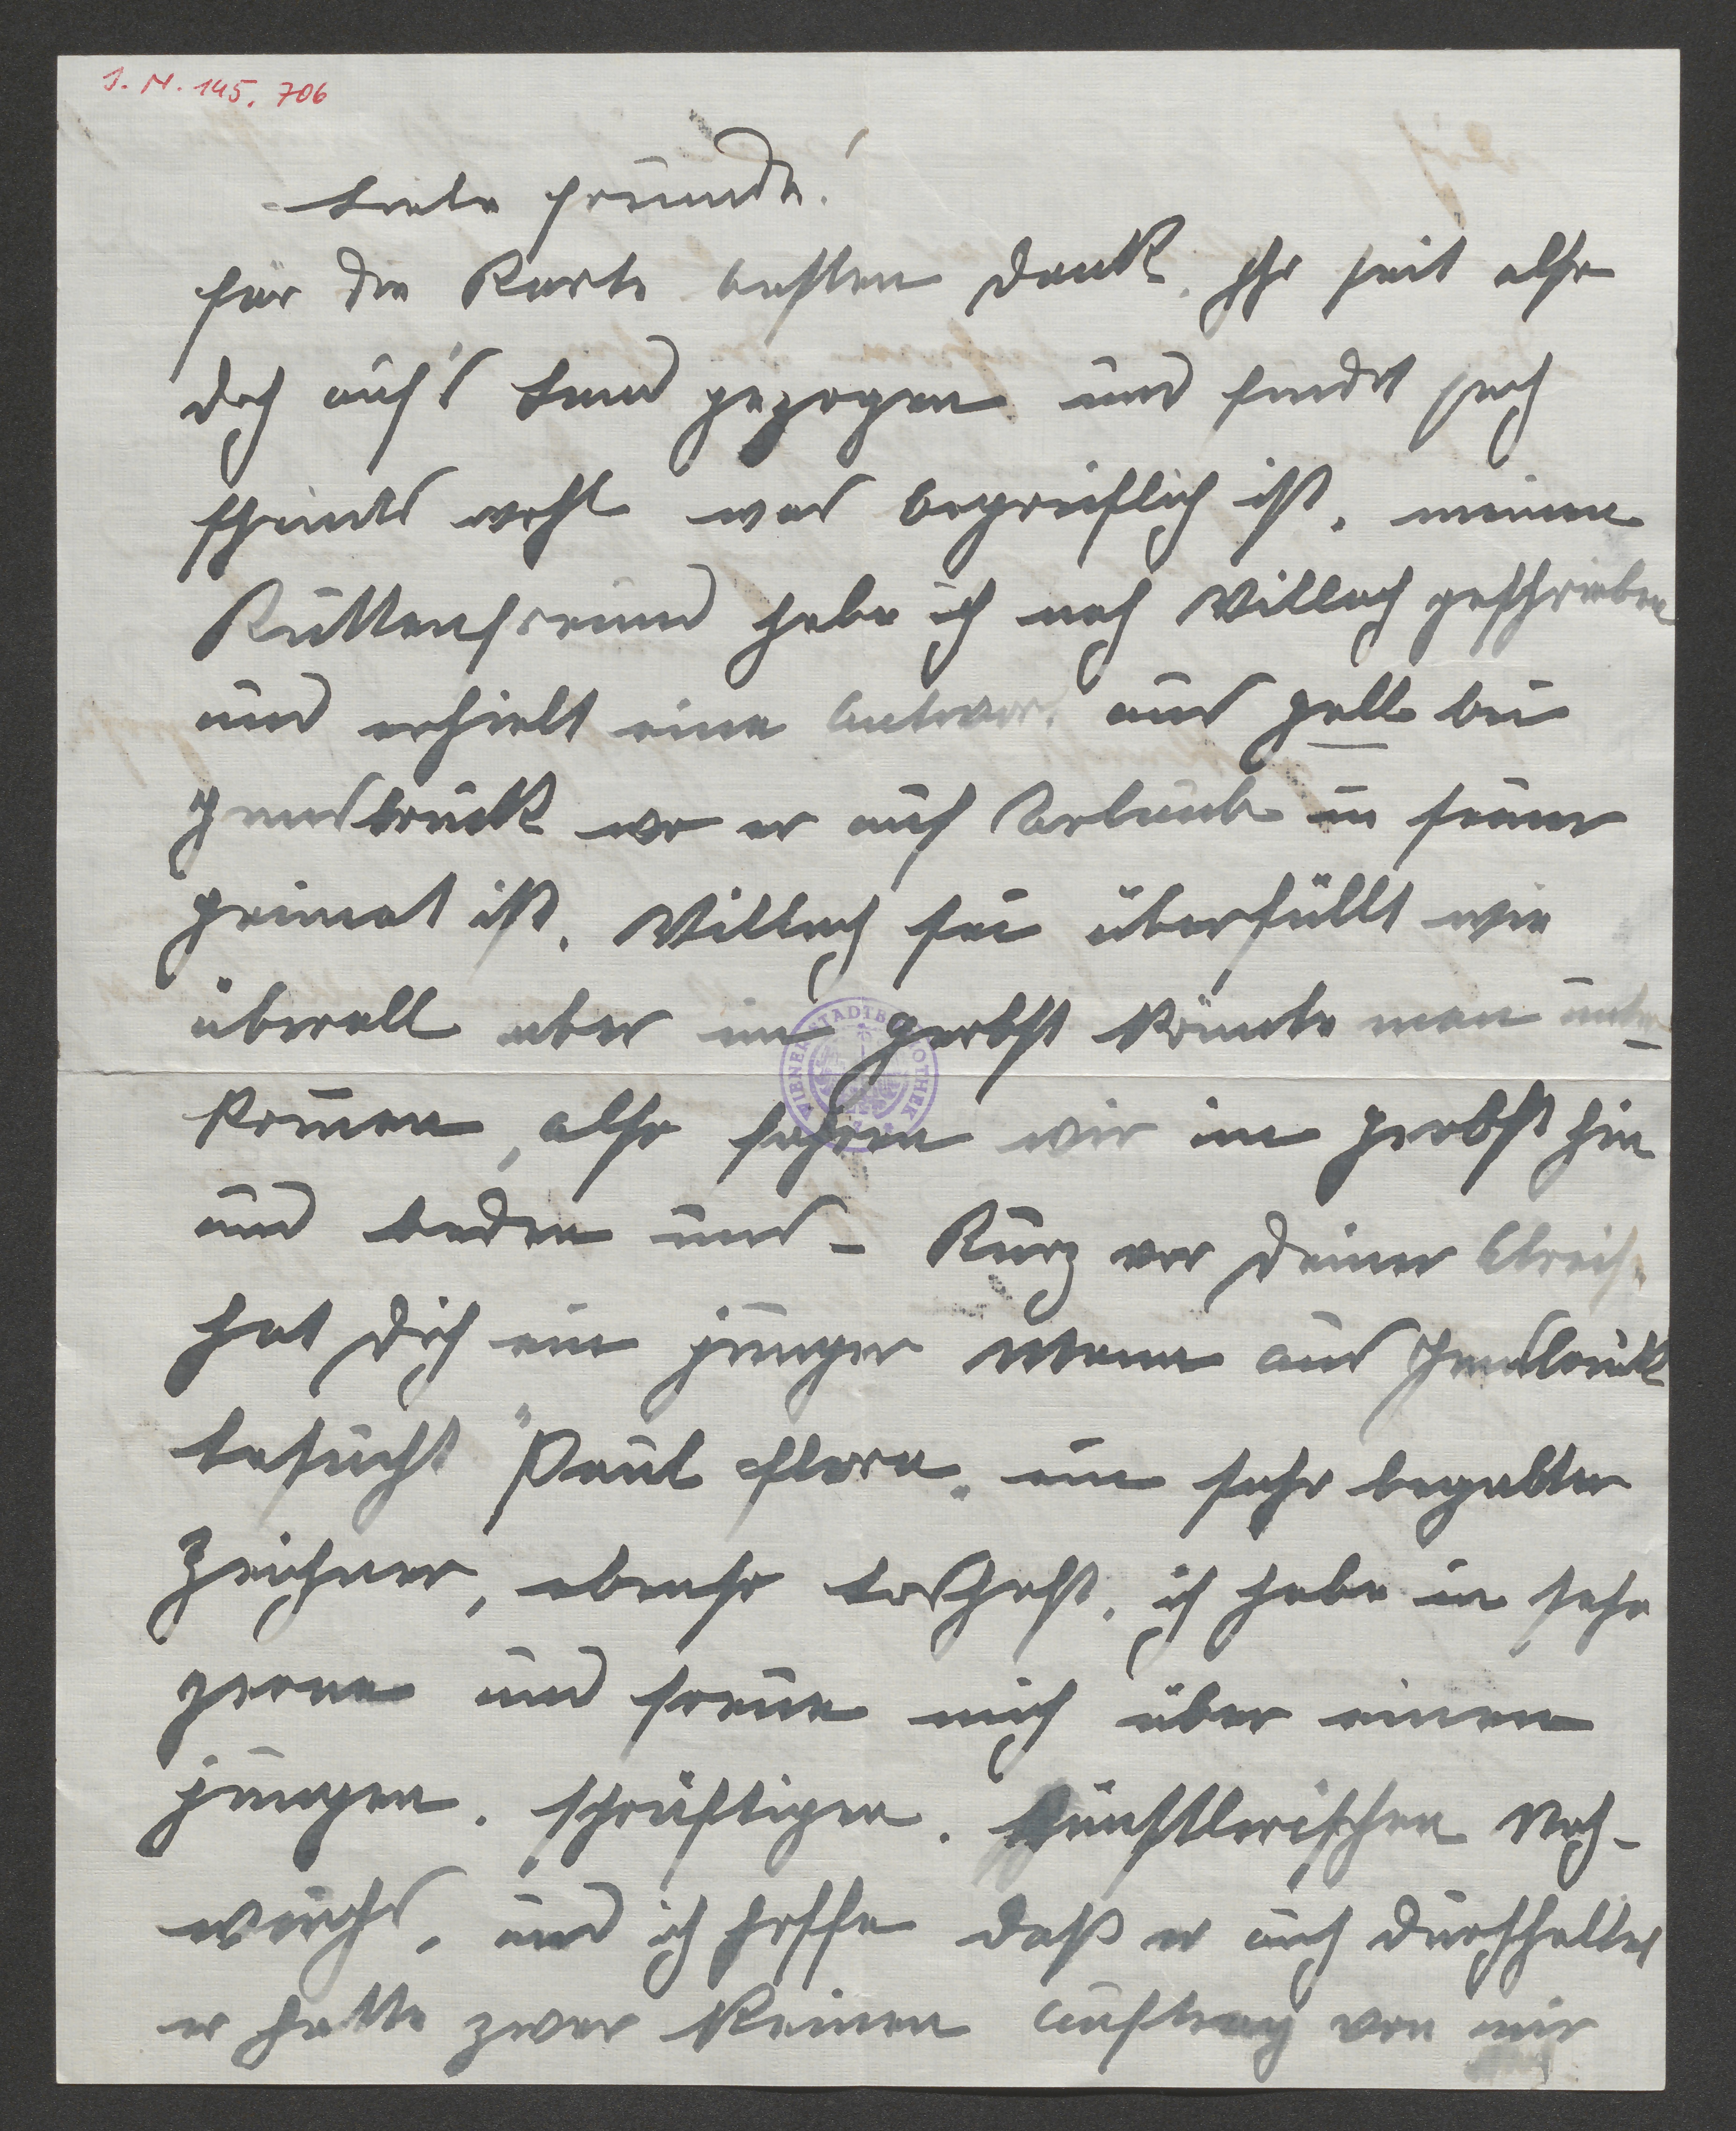 I. N. 145.706
Liebe Freunde!
für die Karte besten Dank. Ihr seit also
doch auf's Land gezogen und findet euch
scheints wohl was begreiflich ist. meinem
Kuttenfreund habe ich nach Villach geschrieben
und erhielt eine Antwort aus Hall bei
Innsbruck wo er auf Urlaub in seiner
Heimat ist. Villach sei überfüllt wie
überall aber im Herbst könnte man unter-
kommen, also fahren wir im Herbst hin
und baden uns – Kurz vor Deiner Abreise
hat Dich ein junger Mann aus Innsbruck
besucht "Paul Flora" ein sehr begabter
Zeichner, ebenso boshaft. ich habe in sehr
gerne und freue mich über einen
jungen. kräftigen. künstlerischen Nach-
wuchs. und ich hoffe daß er auch durchhaltet
er hatte zwar keinen Auftrag von mir
WIENER STADTBIBLIOTHEK